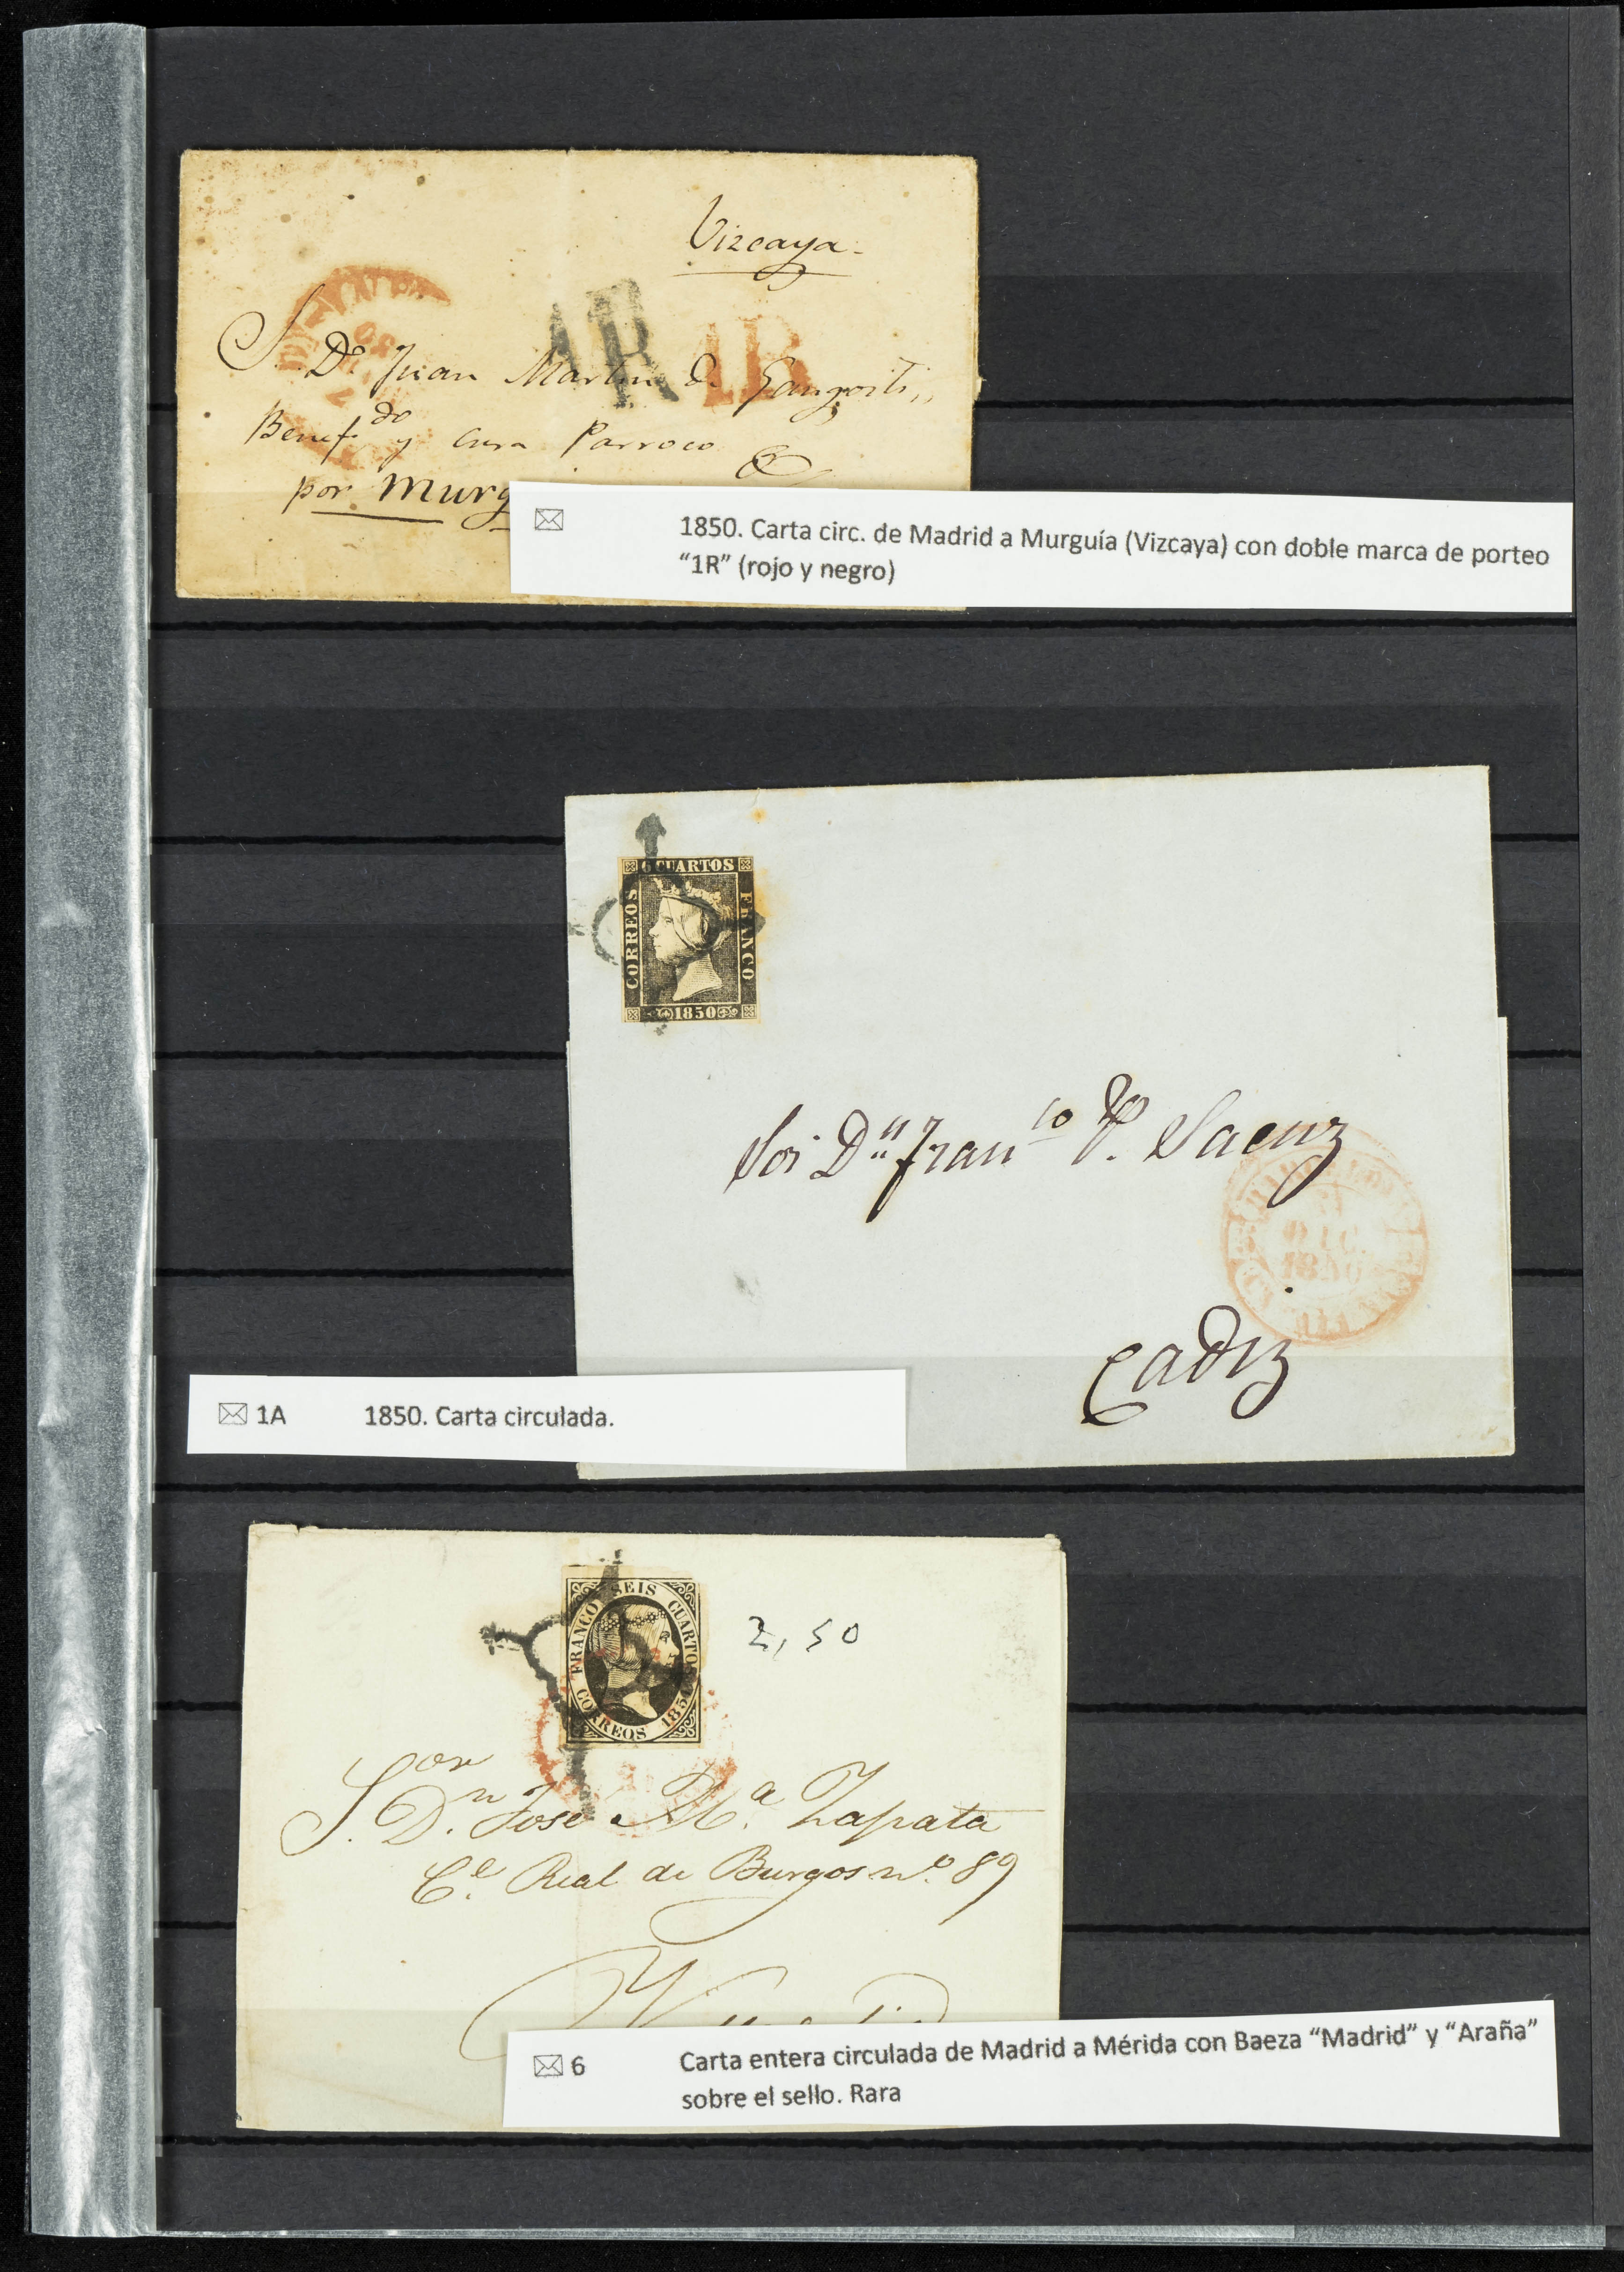 Vizcaya.
1R 1R
S. Dn. Juan Martin de Gangoiti,,
Benef.do y Cura Parroco
por Murg
1850. Carta circ. de Madrid a Murguía (Vizcaya) con doble marca de porteo
“1R” (rojo y negro)
6 CUARTOS
CORREOS
FRANCO
1850
Dn Franco P. Saenz
DIC.
1850
Cadiz
1A 1850. Carta circulada.
FRANCO SEIS CUARTOS
CORREOS 1851
2,50
Sor
S. Dn. Jose Ma. Zapata
Ce. Real de Burgos no. 89
6 Carta entera circulada de Madrid a Mérida con Baeza “Madrid” y “Araña”
sobre el sello. Rara